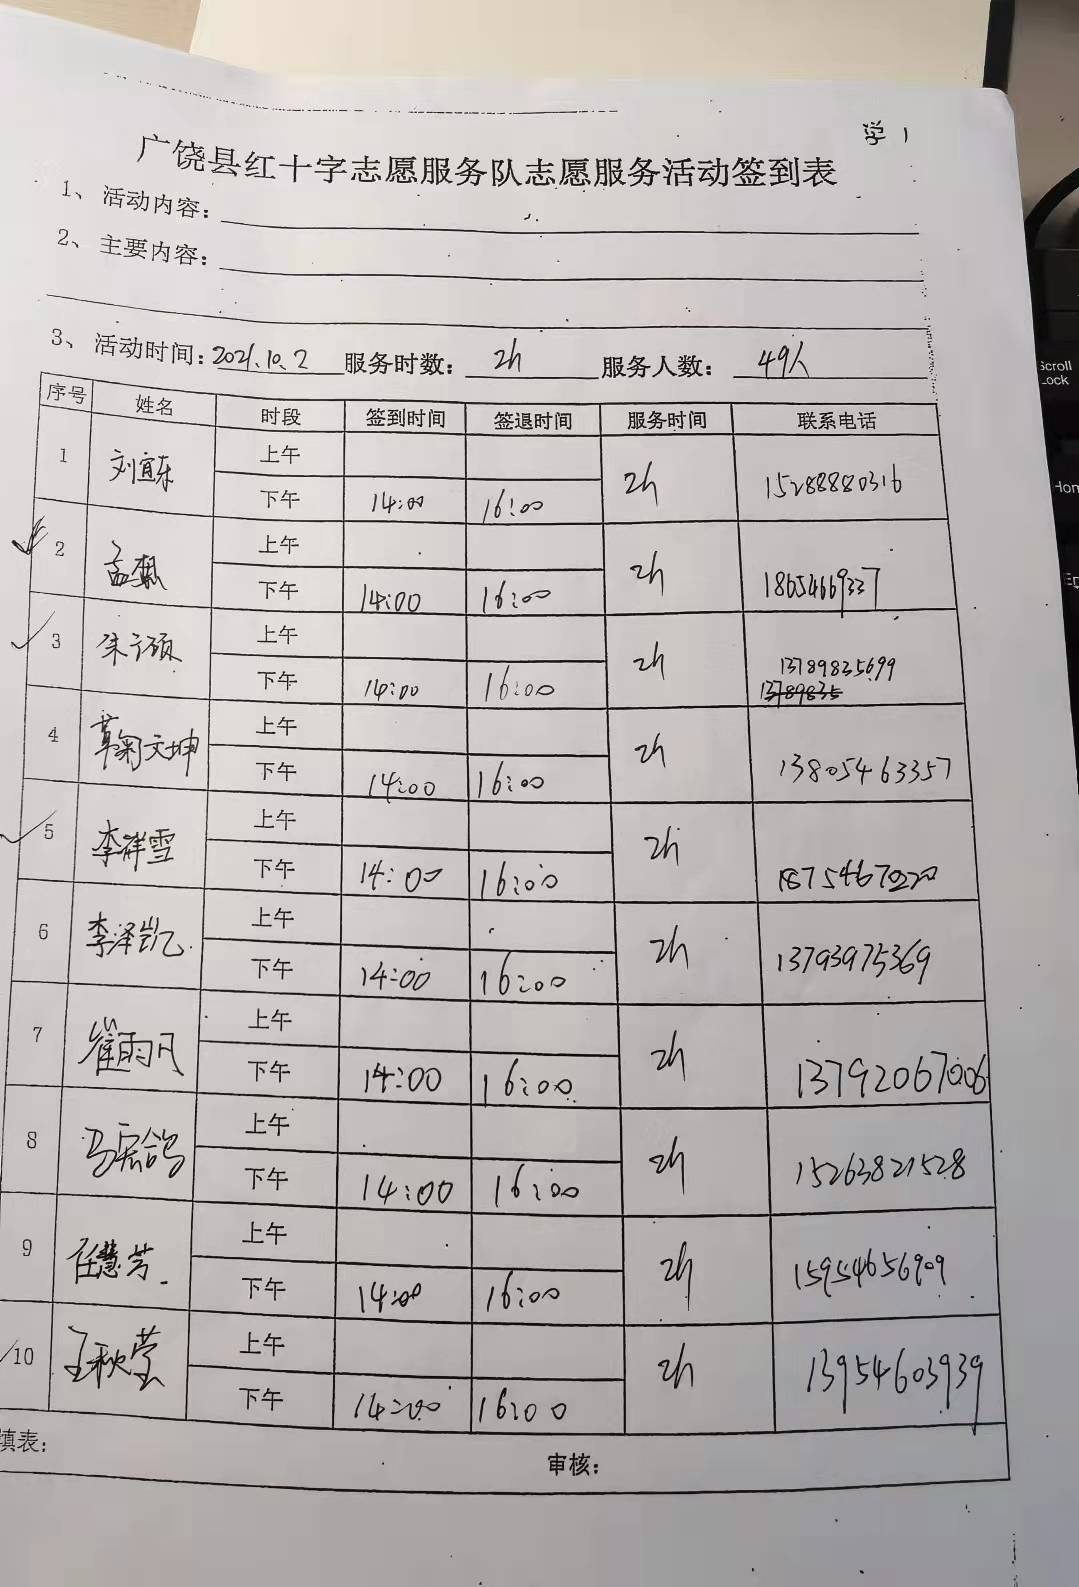 学1
广饶县红十字志愿服务队志愿服务活动签到表
1、活动内容:
2、主要内容:
3、活动时间: 2021.10.2 服务时数: 2h 服务人数: 49人
序号 姓名 时段 签到时间 签退时间 服务时间 联系电话
1 刘宜东 上午 2h 15288880316
下午 14:00 16:00
2 孟 上午 2h 18654669337
下午 14:00 16:00
3 朱子硕 上午 2h 13789835699
下午 14:00 16:00 13789835
4 鞠文坤 上午 2h 13805463357
下午 14:00 16:00
5 李祥雪 上午 2h
下午 14:00 16:00
6 李泽凯 上午 2h 13793975369
下午 14:00 16:00
7 崔雨凡 上午 2h 13792067006
下午 14:00 16:00
8 马宏鸽 上午 2h 15263821528
下午 14:00 16:00
9 任慧芳 上午 2h 15954656909
下午 14:00 16:00
10 王秋莹 上午 2h 13954603939
下午 14:00 16:00
填表:
审核:
Scroll
Lock